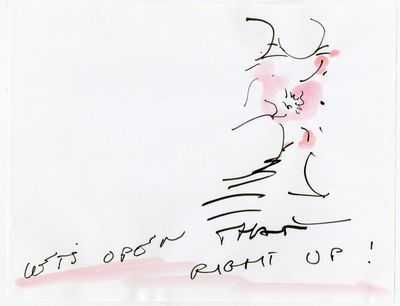 LET'S OPEN THAT
RIGHT UP!